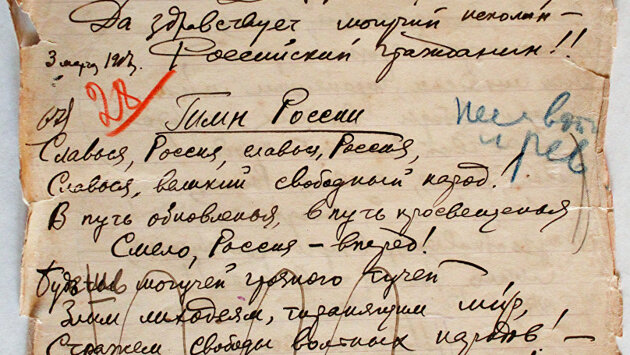 Да здравствует могучий исполин —
Российский гражданин!!
3 марта 1917.
28
Гимн России
Славься, Россия, славься, Россия,
Славься, великий свободный народ!
В путь обновленья, в путь просвещенья
Смело, Россия – вперед!
Будь могучей грозного тучей
Злым лиходеям, тиранящим мир,
Стражем свободы вольных народов! —